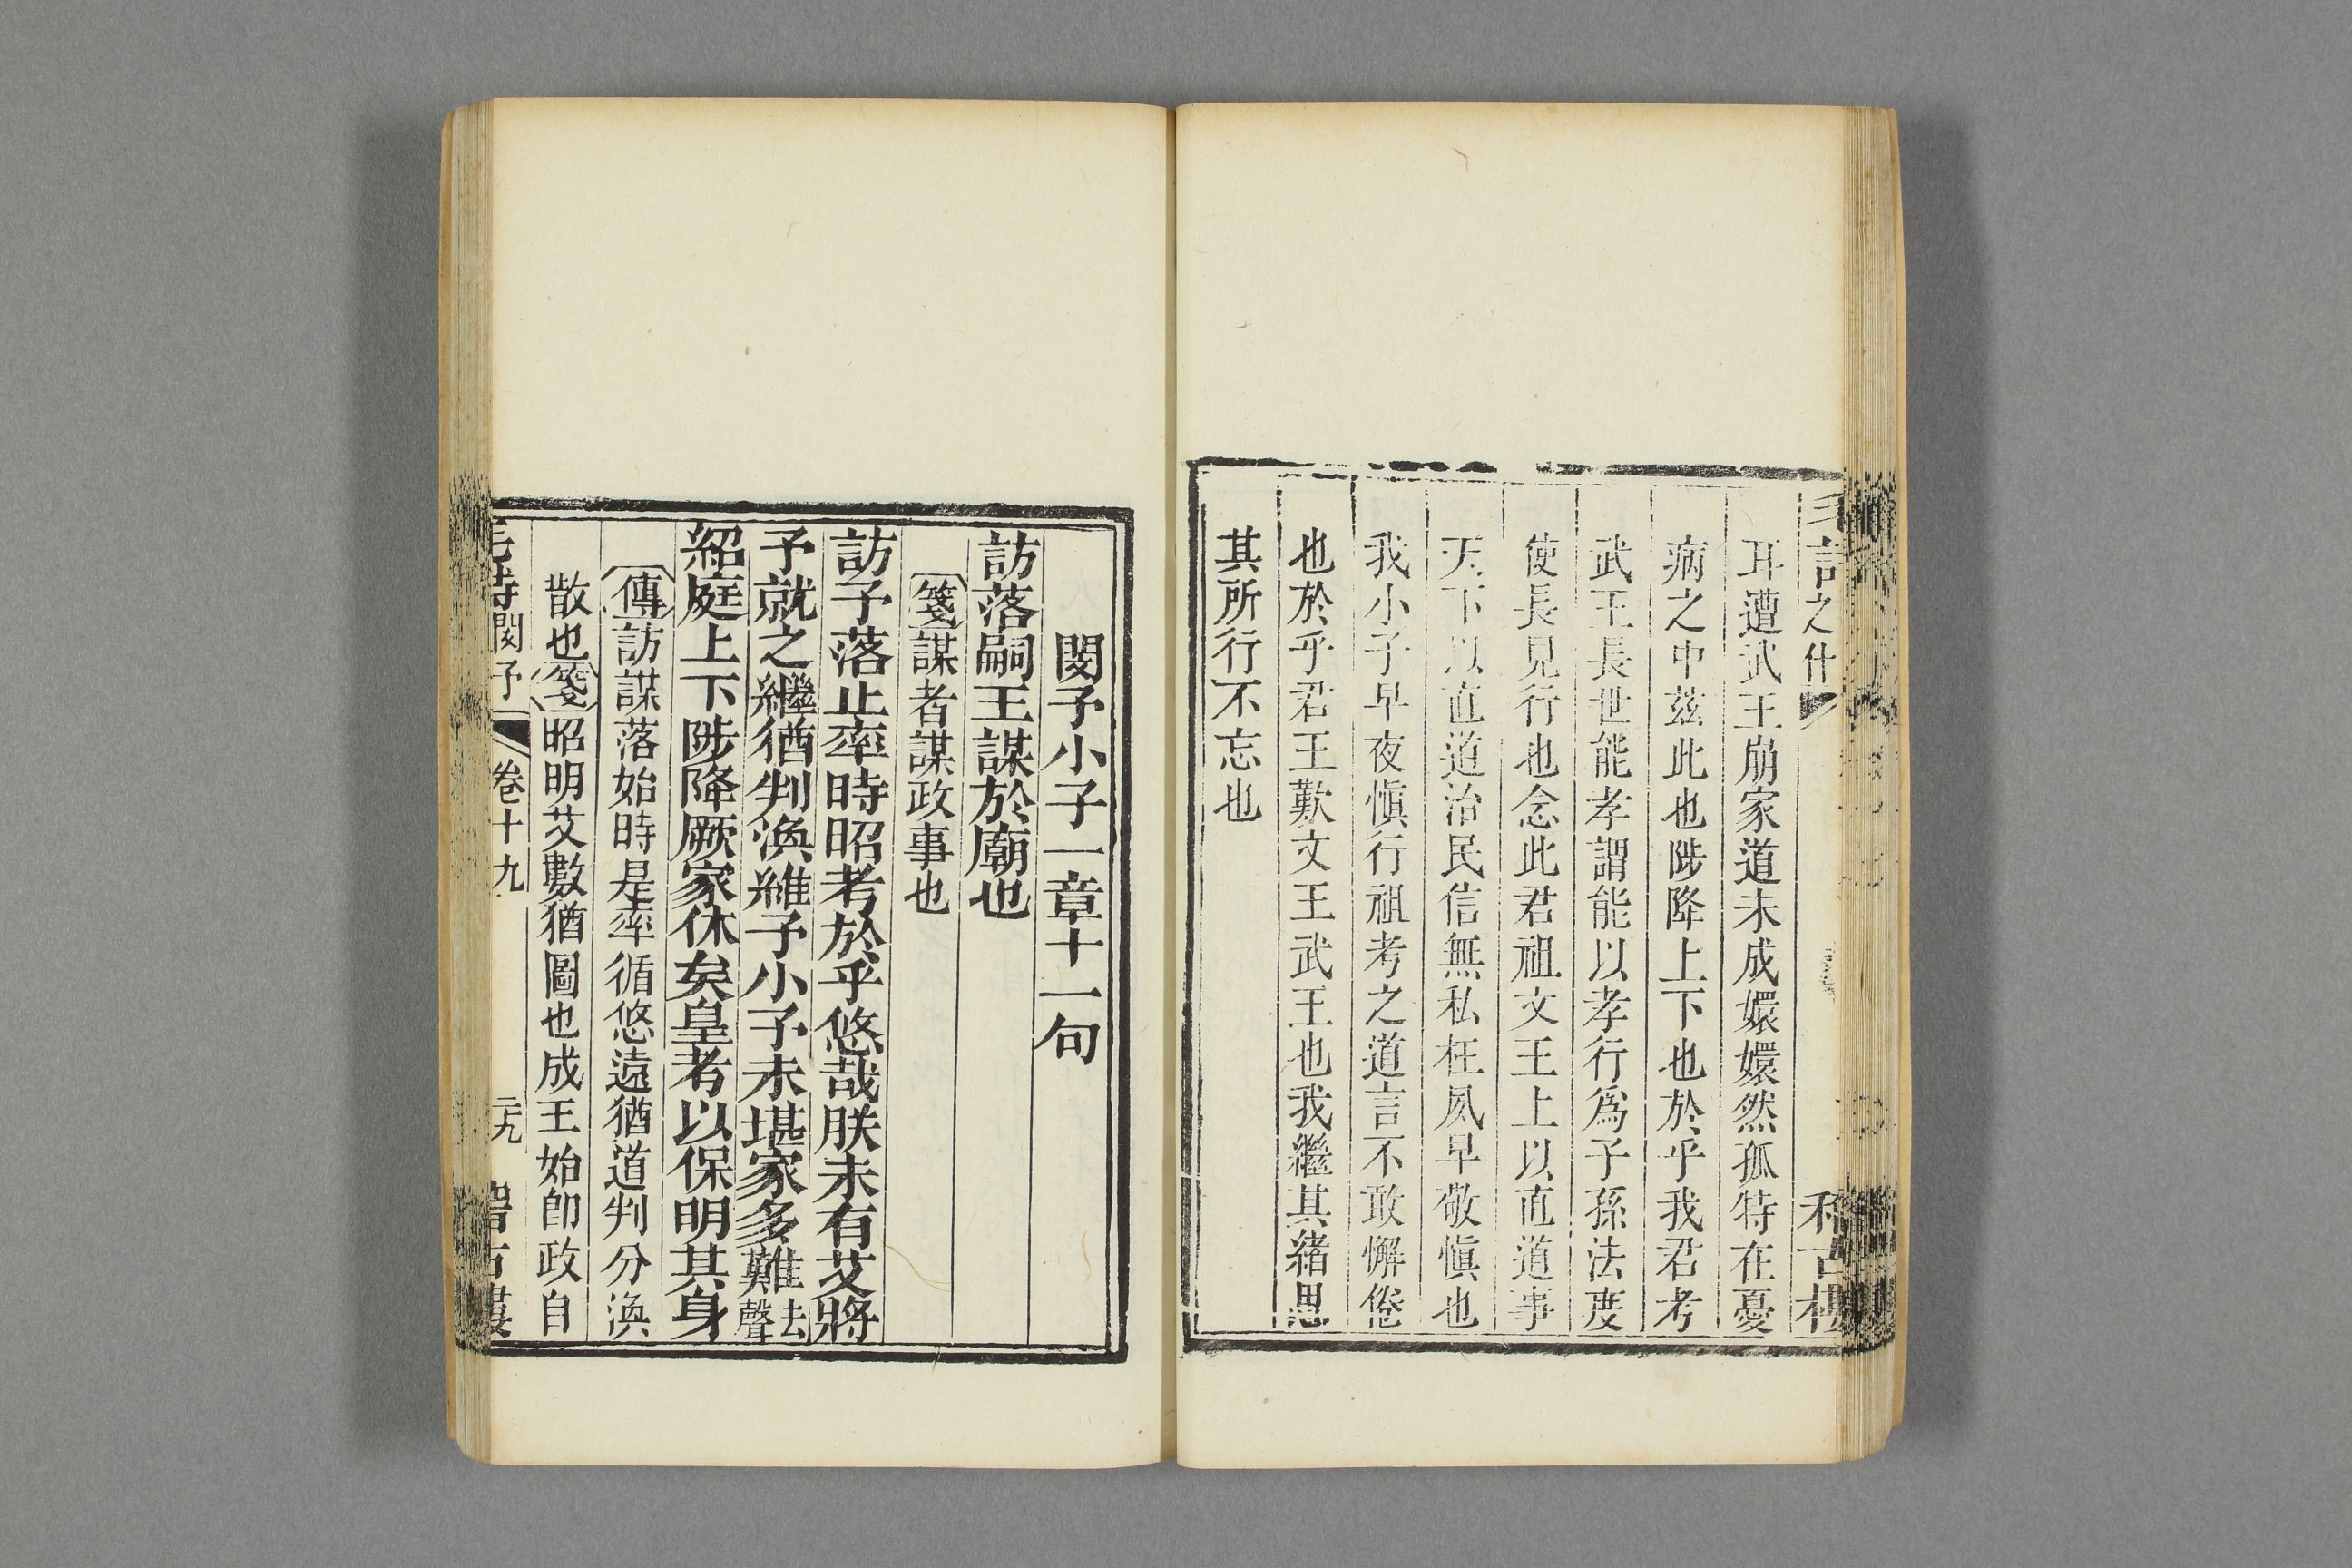 耳遭武王崩家道未成嬛嬛然孤特在憂
病之中茲此也陟降上下也於乎我君考
武王長世能孝謂能以孝行爲子孫法度
使長見行也念此君祖文王上以直道事
天下以直道治民信無私枉夙早敬慎也
我小子早夜慎行祖考之道言不敢懈倦
也於乎君王歎文王武王也我繼其緒思
其所行不忘也
閔予小子一章十一句
訪落嗣王謀於廟也
箋謀者謀政事也
訪予落止率時昭考於乎悠哉朕未有艾將
予就之繼猶判渙維予小子未堪家多難去聲
紹庭上下陟降厥家休矣皇考以保明其身
傳訪謀落始時是率循悠遠猶道判分渙
散也箋昭明艾數猶圖也成王始卽政自
毛詩閔予 卷十九 二九 稽古樓